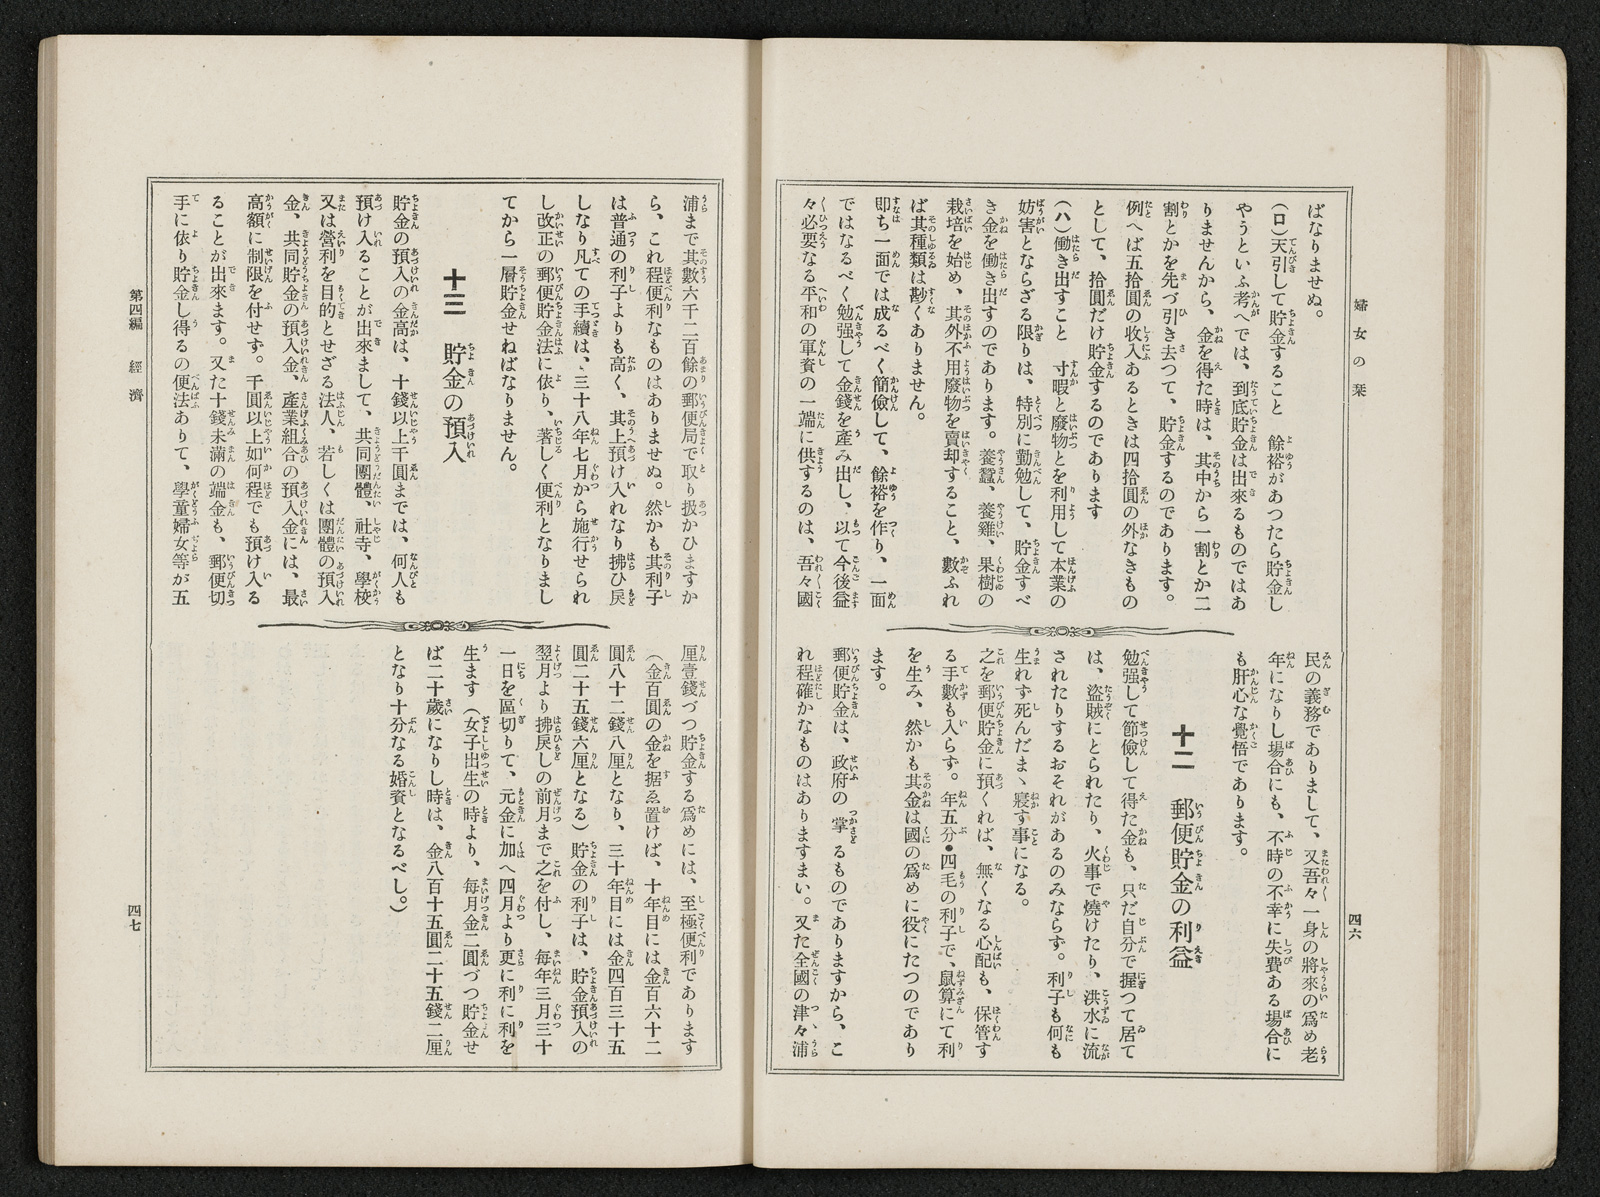 婦女の栞
四六
ばなりませぬ。
(ロ)天引して貯金すること　餘裕があつたら貯金し
やうといふ考へでは、到底貯金は出來るものではあ
りませんから、金を得た時は、其中から一割とか二
割とかを先づ引き去つて、貯金するのであります。
例へば五拾圓の收入あるときは四拾圓の外なきもの
として、拾圓だけ貯金するのであります
(ハ)働き出すこと　寸暇と廢物とを利用して本業の
妨害とならざる限りは、特別に勤勉して、貯金すべ
き金を働き出すのであります。養蠶、養雞、果樹の
栽培を始め、其外不用廢物を賣却すること、數ふれ
ば其種類は尠くありません。
即ち一面では成るべく簡儉して、餘裕を作り、一面
ではなるべく勉强して金錢を産み出し、以て今後益
々必要なる平和の軍資の一端に供するのは、吾々國
民の義務でありまして、又吾々一身の將來の爲め老
年になりし場合にも、不時の不幸に失費ある場合に
も肝心な覺悟であります。
十二　郵便貯金の利益
勉强して節儉して得た金も、只だ自分で握つて居て
は、盜賊にとられたり、火事で燒けたり、洪水に流
されたりするおそれがあるのみならず。利子も何も
生れず死んだまゝ寢す事になる。
之を郵便貯金に預くれば、無くなる心配も、保管す
る手數も入らず。年五分●四毛の利子で、鼠算にて利
を生み、然かも其金は國の爲めに役にたつのであり
ます。
郵便貯金は、政府の掌るものでありますから、こ
れ程確かなものはありますまい。又た全國の津々浦
浦まで其數六千二百餘の郵便局で取り扱かひますか
ら、これ程便利なものはありませぬ。然かも其利子
は普通の利子よりも高く、其上預け入れなり拂ひ戾
しなり凡ての手續は、三十八年七月から施行せられ
し改正の郵便貯金法に依り、著しく便利となりまし
てから一層貯金せねばなりません。
十三　貯金の預入
貯金の預入の金高は、十錢以上千圓までは、何人も
預け入ることが出來まして、共同團體、社寺、學校
又は營利を目的とせざる法人、若しくは團體の預入
金、共同貯金の預入金、產業組合の預入金には、最
高額に制限を付せず。千圓以上如何程でも預け入る
ることが出來ます。又た十錢未滿の端金も、郵便切
手に依り貯金し得るの便法ありて、學童婦女等が五
厘壹錢づつ貯金する爲めには、至極便利であります
(金百圓の金を据ゑ置けば、十年目には金百六十二
圓八十二錢八厘となり、三十年目には金四百三十五
圓二十五錢六厘となる)貯金の利子は、貯金預入の
翌月より拂戾しの前月まで之を付し、每年三月三十
一日を區切りて、元金に加へ四月より更に利に利を
生ます(女子出生の時より、每月金二圓づつ貯金せ
ば二十歲になりし時は、金八百十五圓二十五錢二厘
となり十分なる婚資となるべし。)
第四編　經濟
四七